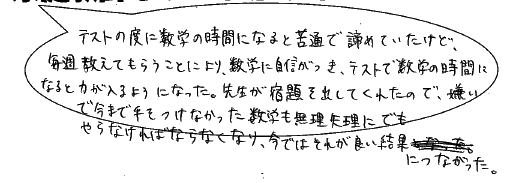 テストの度に数学の時間になると苦痛で諦めていたけど、
毎週教えてもらうことにより、数学に自信がつき、テストで数学の時間に
なると力が入るようになった。先生が宿題を出してくれたので、嫌い
で今まで手をつけなかった数学も無理矢理にでも
やらなければならなくなり、今ではそれが良い結果
につながった。